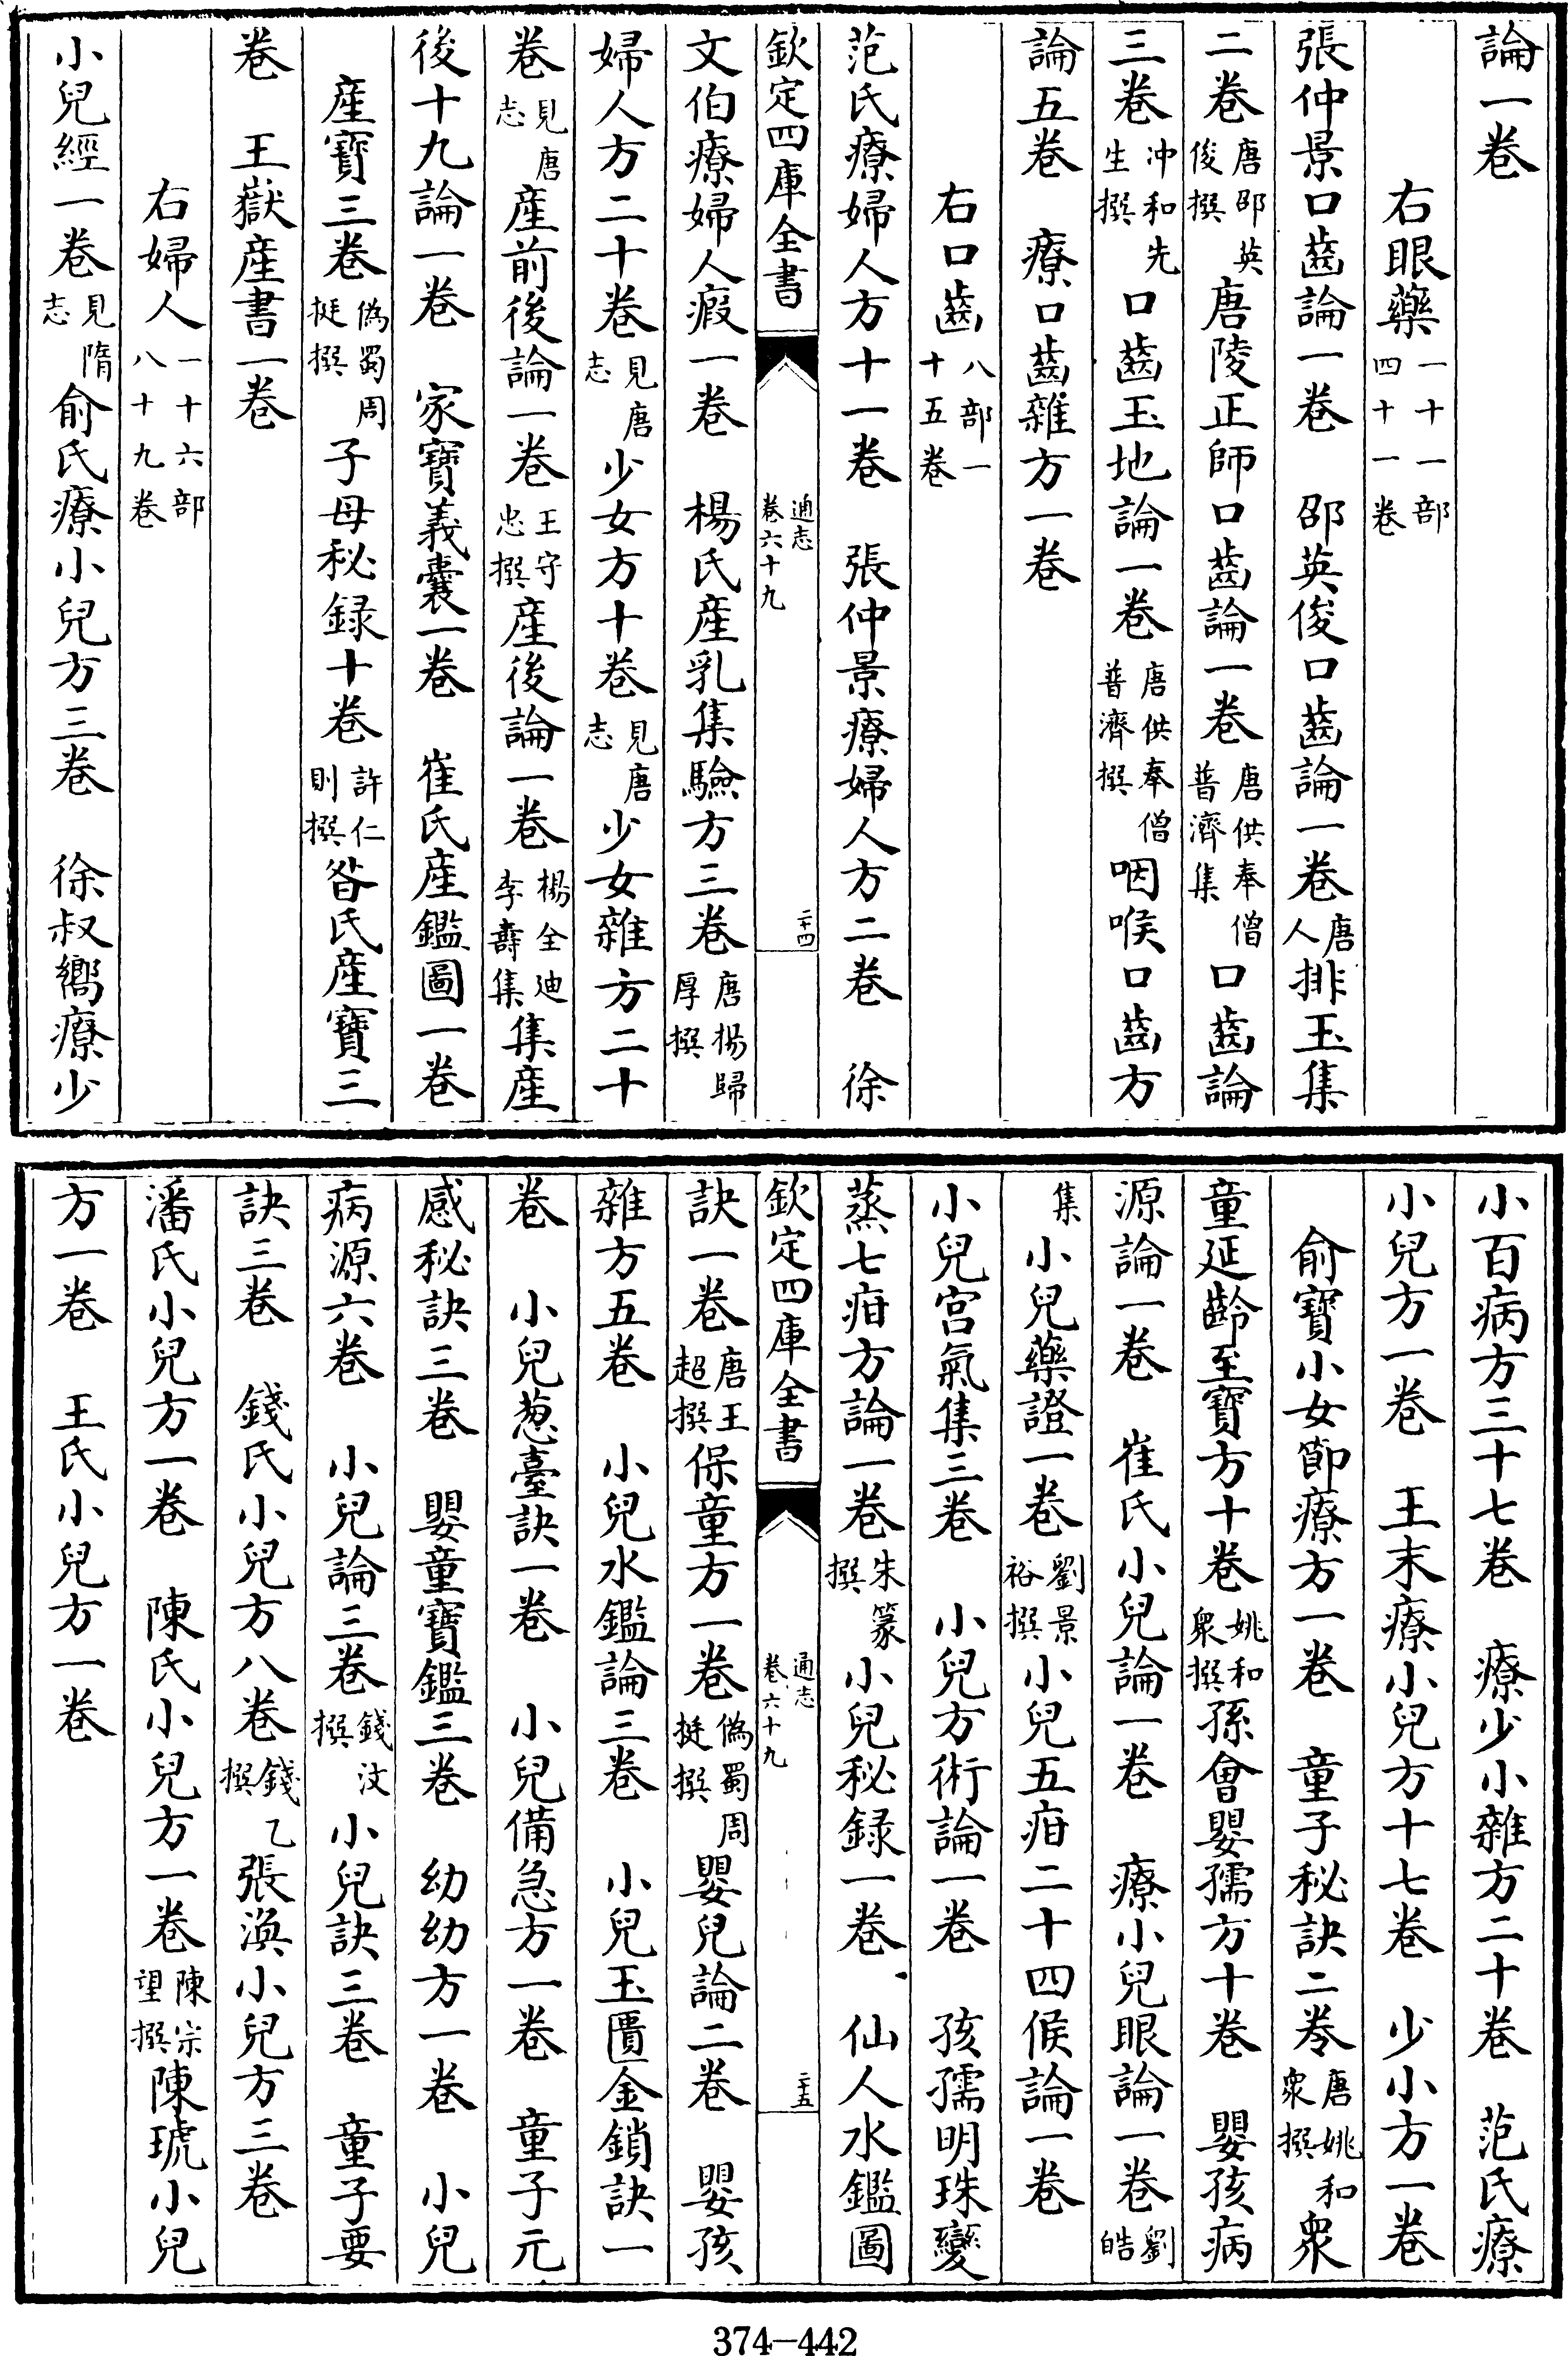 論一卷
右眼藥一十一部四十一卷
張仲景口齒論一卷　邵英俊口齒論一卷唐人排玉集
二卷唐邵英俊撰唐陵正師口齒論一卷唐供奉僧普濟集口齒論
三卷沖和先生撰口齒玉地論一卷唐供奉僧普濟撰咽喉口齒方
論五卷　療口齒雜方一卷
右口齒八部一十五卷
范氏療婦人方十一卷　張仲景療婦人方二卷　徐
欽定四庫全書　通志卷六十九　二十四
文伯療婦人瘕一卷　楊氏産乳集驗方三卷唐楊歸厚撰
婦人方二十卷見唐志少女方十卷見唐志少女雜方二十
卷見唐志産前後論一卷王守忠撰産後論一卷楊全迪李壽集集産
後十九論一卷　家寶義囊一卷　崔氏産鑑圖一卷
産寶三卷僞蜀周挺撰子母秘録十卷許仁則撰昝氏産寶三
卷　王嶽産書一卷
右婦人一十六部八十九卷
小兒經一卷見隋志俞氏療小兒方三卷　徐叔嚮療少
小百病方三十七卷　療少小雜方二十卷　范氏療
小兒方一卷　王末療小兒方十七卷　少小方一卷
俞寶小女節療方一卷　童子秘訣二卷唐姚和衆撰衆
童延齡至寶方十卷姚和衆撰孫會嬰孺方十卷　嬰孩病
源論一卷　崔氏小兒論一卷　療小兒眼論一卷劉皓
集小兒藥證一卷劉景裕撰小兒五疳二十四候論一卷
小兒宮氣集三卷　小兒方術論一卷　孩孺明珠變
蒸七疳方論一卷朱篆撰小兒秘録一卷　仙人水鑑圖
欽定四庫全書　通志卷六十九　二十五
訣一卷唐王超撰保童方一卷僞蜀周挺撰嬰兒論二卷　嬰孩
雜方五卷　小兒水鑑論三卷　小兒玉匱金鎖訣一
卷　小兒葱臺訣一卷　小兒備急方一卷　童子元
感秘訣三卷　嬰童寶鑑三卷　幼幼方一卷　小兒
病源六卷　小兒論三卷錢汶撰小兒訣三卷　童子要
訣三卷　錢氏小兒方八卷錢乙撰張渙小兒方三卷
潘氏小兒方一卷　陳氏小兒方一卷陳宗望撰陳琥小兒
方一卷　王氏小兒方一卷
374-442